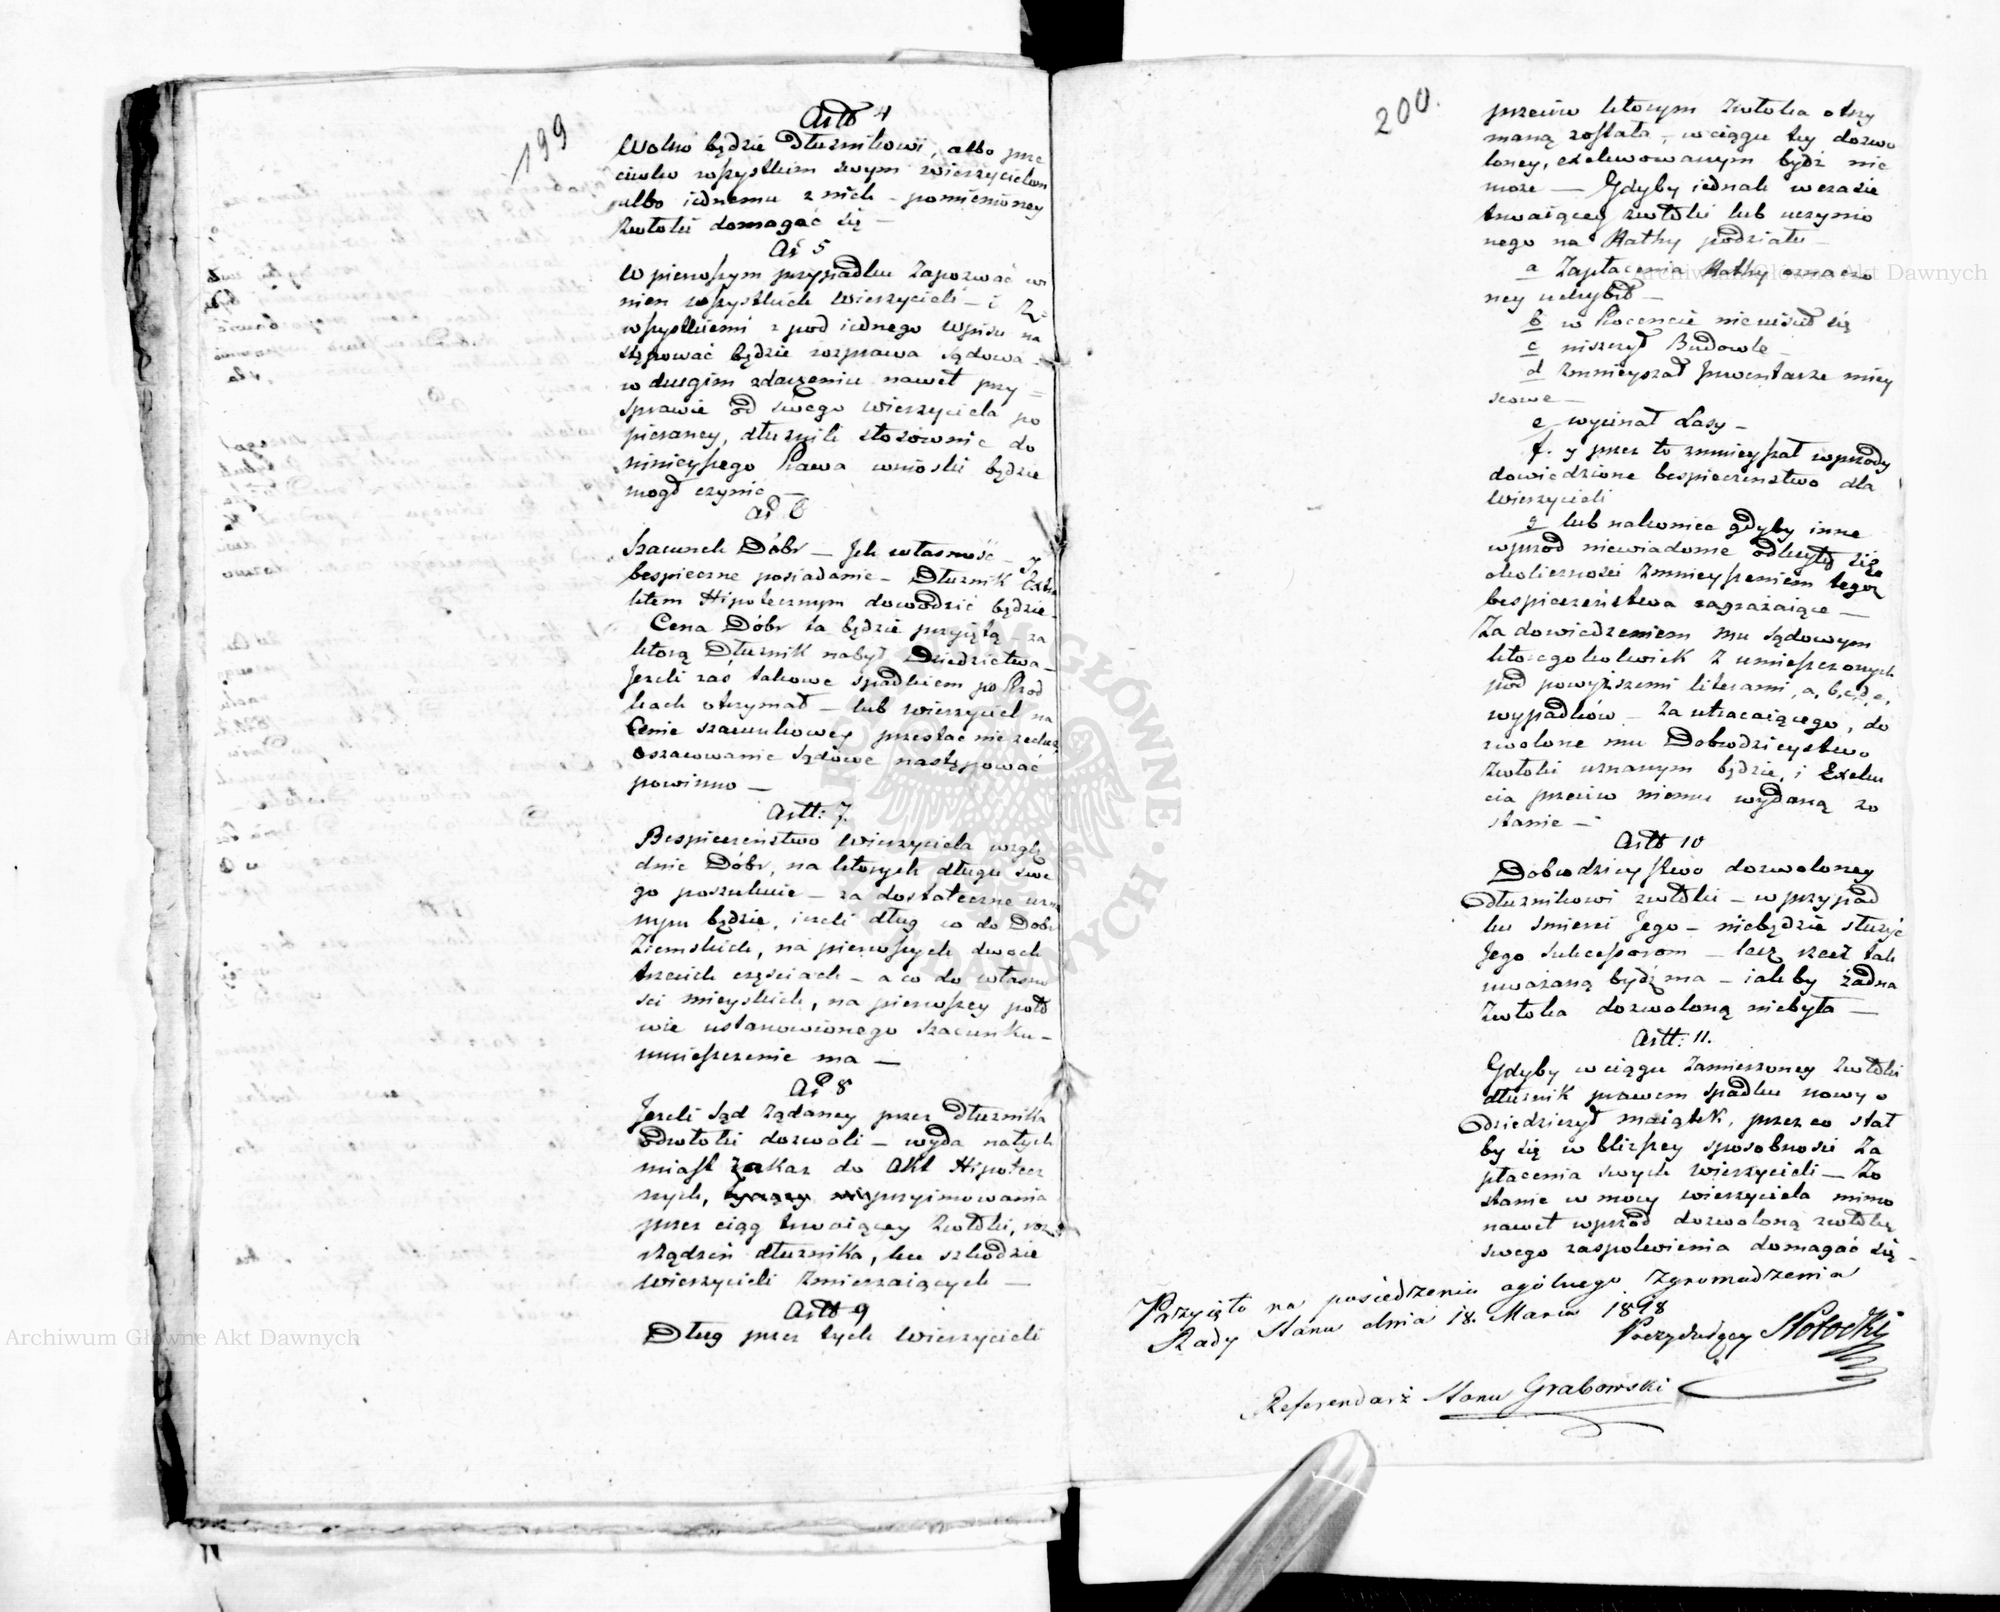 199
Artt 4
Wolno będzie Dłużnikowi, albo prze
ciwko wszystkim swym wierzycielom
albo iednemu z nich – pomienioney
zwłoki domagać się –
Ar 5
W pierwszym przypadku Zapozwać wi
nien wszystkich Wierzycieli – i Ze
wszystkiemi z pod iednego Wpisu na
stępować będzie rozprawa sądowa –
w drugim zdarzeniu nawet przy =
sprawie od swego wierzyciela po
pieraney, dłużnik stosownie do
ninieyszego Prawa wnioski będzie
mogł czynić –
Ar 6
Szacunek Dóbr – Ich własność – I
bespieczne posiadanie – Dłużnik Extra
ktem Hipotecznym dowodzić będzie –
Cena Dóbr ta będzie przyiętą – za
ktorą Dłużnik nabył Dziedzictwa –
Jezeli zaś takowe spadkiem po Przod
kach otrzymał – lub wierzyciel na
Cenie szacunkowey przestac nie zechce,
oszacowanie sądowe następować
powinno –
Artt: 7.
Bespieczeństwo Wierzyciela wzglę
dnie Dóbr, na ktorych długu swe
go poszukuie – za dostateczne uzna
nym będzie, iezeli dług co do Dobr
Ziemskich, na pierwszych dwoch
trzecich częściach – a co do własno
sci mieyskich, na pierwszey poło
wie ustanowionego szacunku –
umieszczenie ma –
Ar 8
Jezeli Sąd żądaney przez Dłużnika
odwłoki dozwoli – wyda natych
miast zakaz do Akt Hipotecz
nych, przyimowania
przez ciąg trwaiącey zwłoki, roz
rządzeń dłużnika, ku szkodzie
wierzycieli zmierzaiących –
Artt 9
Dług przez tych Wierzycieli
200.
przeciw ktorym zwłoka otrzy
maną została, w ciągu tey dozwo
loney, exekwowanym bydź nie
moze – Gdyby iednak w czasie
trwaiącey zwłoki lub uczynio
nego na Rathy podziału –
a Zapłacenia Rathy oznaczo
ney uchybił –
b w Procencie nieuiścił się
c niszczył Budowle –
d zmnieyszał Inwentarze miey
scowe –
e wycinał Lasy –
f. y przez to zmnieyszał wprzody
dowiedzione bespieczenstwo dla
Wierzycieli
g lub nakoniec gdyby inne
wprzod niewiadome odkryły się
okolicznosci zmnieyszeniem tegoz
bespieczeństwa zagrażaiące –
Za dowiedzeniem mu sądowym
ktoregokolwiek z umieszczonych
pod powyższemi literami, a, b, c, d, e,
wypadków – za utracaiącego, do
zwolone mu Dobrodzieystwo
zwłoki uznanym będzie, i Exeku
cia przeciw niemu wydaną zo
stanie –
Artt 10
Dobrodzieystwo dozwoloney
Dłużnikowi zwłoki – w przypad
ku śmierci Jego – niebędzie służyć
Jego sukcessorom – lecz rzecz tak
uważaną bydź ma – iak by żadna
Zwłoka dozwoloną niebyła –
Artt: 11.
Gdyby w ciągu zamierzoney zwłoki
dłużnik prawem spadku nowy o
dziedziczył maiątek, przez co stał
by się w bliższey sposobnosci za
płacenia swych wierzycieli – Zo
stanie w mocy wierzyciela mimo
nawet wprzód dozwoloną zwłokę,
swego zaspokoienia domagać się –
Przyięto na posiedzeniu ogólnego Zgromadzenia
Rady Stanu dnia 18. Marca 1818
Prezyduiący Potocki
Referendarz Stanu Grabowski
Archiwum Główne Akt Dawnych
Archiwum Główne Akt Dawnych
ARCHIWUM GŁÓWNE AKT DAWNYCH